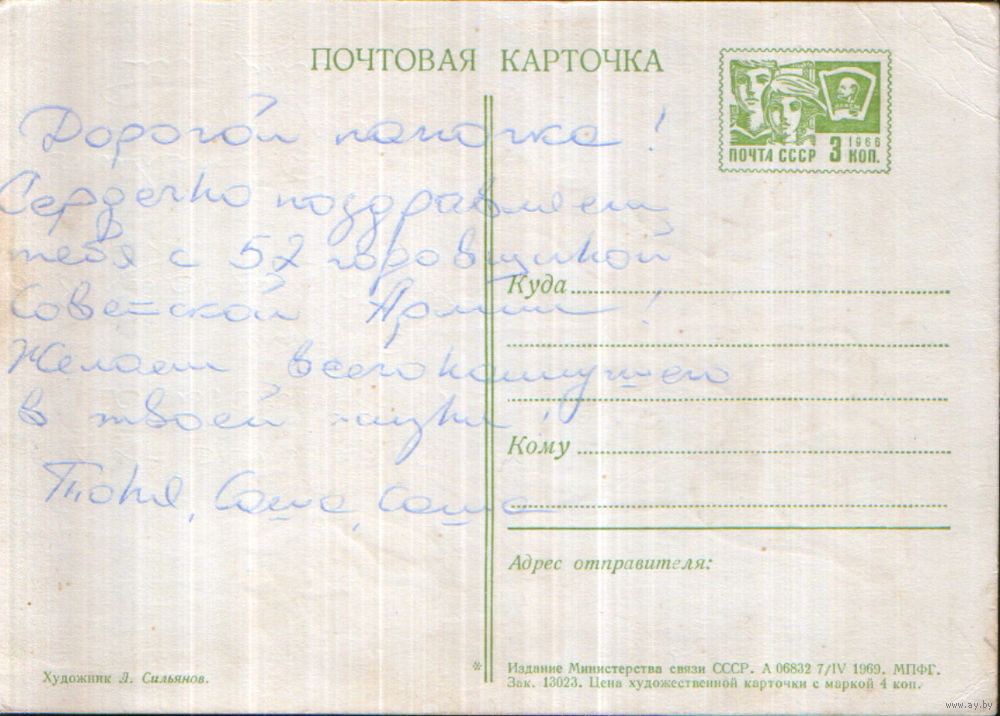 ПОЧТОВАЯ КАРТОЧКА
ПОЧТА СССР 3 КОП.
1966
Дорогой папочка!
Сердечно поздравляем
тебя с 52 годовщиной
Советской Армии!
Желаем всего наилучшего
в твоей жизни!
Тоня, Саша, Саша
Куда
Кому
Адрес отправителя:
Художник Л. Сильянов.
* Издание Министерства связи СССР. А 06832 7/IV 1969. МПФГ.
Зак. 13023. Цена художественной карточки с маркой 4 коп.
www.ay.by